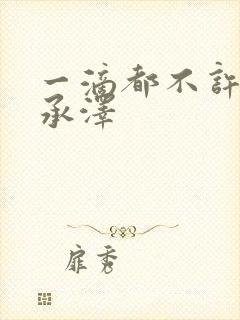 一滴都不許
承澤
扉秀